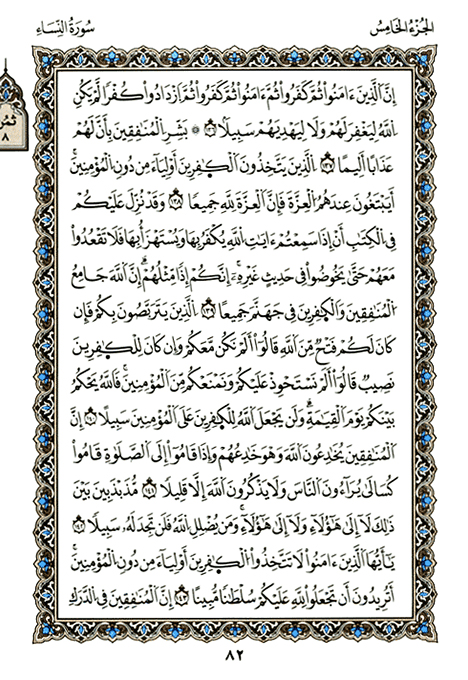 الجُزءُ الخَامِسُ
سُورَةُ النِّسَاءِ
إِنَّ ٱلَّذِينَ ءَامَنُوا۟ ثُمَّ كَفَرُوا۟ ثُمَّ ءَامَنُوا۟ ثُمَّ كَفَرُوا۟ ثُمَّ ٱزْدَادُوا۟ كُفْرًا لَّمْ يَكُنِ
ٱللَّهُ لِيَغْفِرَ لَهُمْ وَلَا لِيَهْدِيَهُمْ سَبِيلًا ١٣٦ ۞ بَشِّرِ ٱلْمُنَٰفِقِينَ بِأَنَّ لَهُمْ
عَذَابًا أَلِيمًا ١٣٧ ٱلَّذِينَ يَتَّخِذُونَ ٱلْكَٰفِرِينَ أَوْلِيَآءَ مِن دُونِ ٱلْمُؤْمِنِينَ
أَيَبْتَغُونَ عِندَهُمُ ٱلْعِزَّةَ فَإِنَّ ٱلْعِزَّةَ لِلَّهِ جَمِيعًا ١٣٨ وَقَدْ نُزِّلَ عَلَيْكُمْ
فِى ٱلْكِتَٰبِ أَنْ إِذَا سَمِعْتُمْ ءَايَٰتِ ٱللَّهِ يُكْفَرُ بِهَا وَيُسْتَهْزَأُ بِهَا فَلَا تَقْعُدُوا۟
مَعَهُمْ حَتَّىٰ يَخُوضُوا۟ فِى حَدِيثٍ غَيْرِهِۦٓ إِنَّكُمْ إِذًا مِّثْلُهُمْ إِنَّ ٱللَّهَ جَامِعُ
ٱلْمُنَٰفِقِينَ وَٱلْكَٰفِرِينَ فِى جَهَنَّمَ جَمِيعًا ١٣٩ ٱلَّذِينَ يَتَرَبَّصُونَ بِكُمْ فَإِن
كَانَ لَكُمْ فَتْحٌ مِّنَ ٱللَّهِ قَالُوٓا۟ أَلَمْ نَكُن مَّعَكُمْ وَإِن كَانَ لِلْكَٰفِرِينَ
نَصِيبٌ قَالُوٓا۟ أَلَمْ نَسْتَحْوِذْ عَلَيْكُمْ وَنَمْنَعْكُم مِّنَ ٱلْمُؤْمِنِينَ فَٱللَّهُ يَحْكُمُ
بَيْنَكُمْ يَوْمَ ٱلْقِيَٰمَةِ وَلَن يَجْعَلَ ٱللَّهُ لِلْكَٰفِرِينَ عَلَى ٱلْمُؤْمِنِينَ سَبِيلًا ١٤٠ إِنَّ
ٱلْمُنَٰفِقِينَ يُخَٰدِعُونَ ٱللَّهَ وَهْوَ خَٰدِعُهُمْ وَإِذَا قَامُوٓا۟ إِلَى ٱلصَّلَوٰةِ قَامُوا۟
كُسَالَىٰ يُرَآءُونَ ٱلنَّاسَ وَلَا يَذْكُرُونَ ٱللَّهَ إِلَّا قَلِيلًا ١٤١ مُّذَبْذَبِينَ بَيْنَ
ذَٰلِكَ لَآ إِلَىٰ هَٰٓؤُلَآءِ وَلَآ إِلَىٰ هَٰٓؤُلَآءِ وَمَن يُضْلِلِ ٱللَّهُ فَلَن تَجِدَ لَهُۥ سَبِيلًا ١٤٢
يَٰٓأَيُّهَا ٱلَّذِينَ ءَامَنُوا۟ لَا تَتَّخِذُوا۟ ٱلْكَٰفِرِينَ أَوْلِيَآءَ مِن دُونِ ٱلْمُؤْمِنِينَ
أَتُرِيدُونَ أَن تَجْعَلُوا۟ لِلَّهِ عَلَيْكُمْ سُلْطَٰنًا مُّبِينًا ١٤٣ إِنَّ ٱلْمُنَٰفِقِينَ فِى ٱلدَّرَكِ
ثمن
٨
٨٢